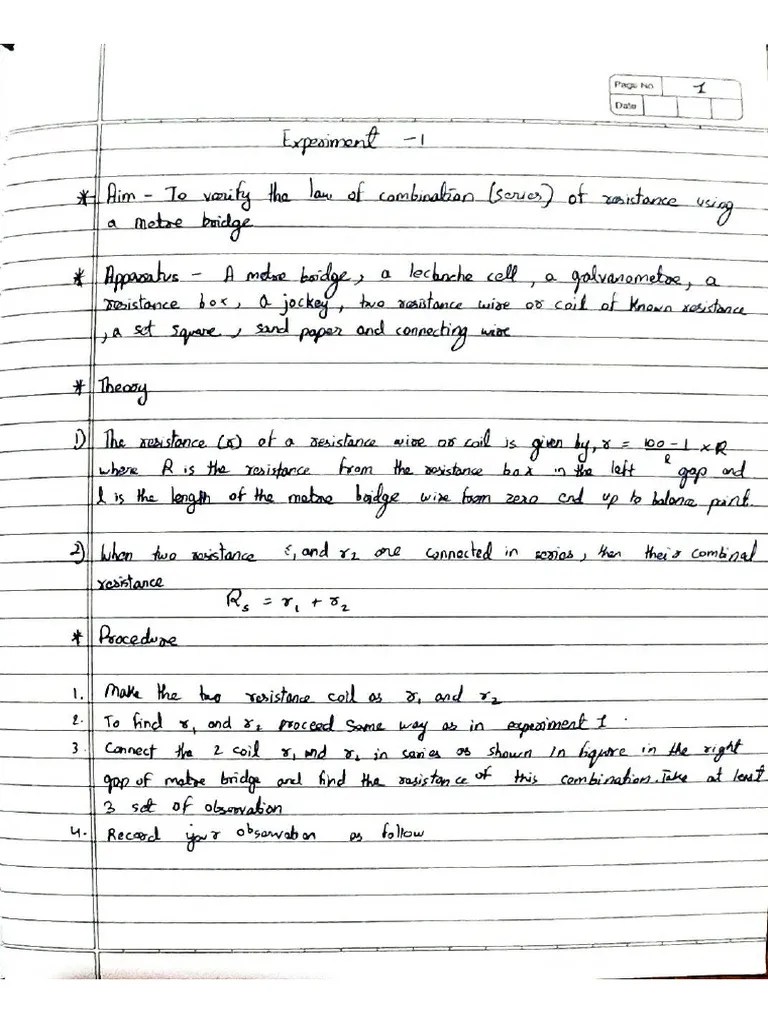 Page No 1
Date
Experiment -1
* Aim - To verify the law of combination (series) of resistance using
a metre bridge
* Apparatus - A metre bridge, a leclanche cell, a galvanometre, a
resistance box, a jockey, two resistance wire or coil of known resistance
, a set square, sand paper and connecting wire
* Theory
1) The resistance (r) of a resistance wire or coil is given by, r = 100-l/l × R
where R is the resistance from the resistance box in the left gap and
l is the length of the metre bridge wire from zero end up to balance point.
2) When two resistance r₁ and r₂ are connected in series, then their combinal
resistance
Rs = r₁ + r₂
* Procedure
1. Make the two resistance coil as r₁ and r₂
2. To find r₁ and r₂ proceed same way as in experiment 1.
3. Connect the 2 coil r₁ and r₂ in series as shown in figure in the right
gap of metre bridge and find the resistance of this combination. Take at least
3 set of observation
4. Record your observation as follow